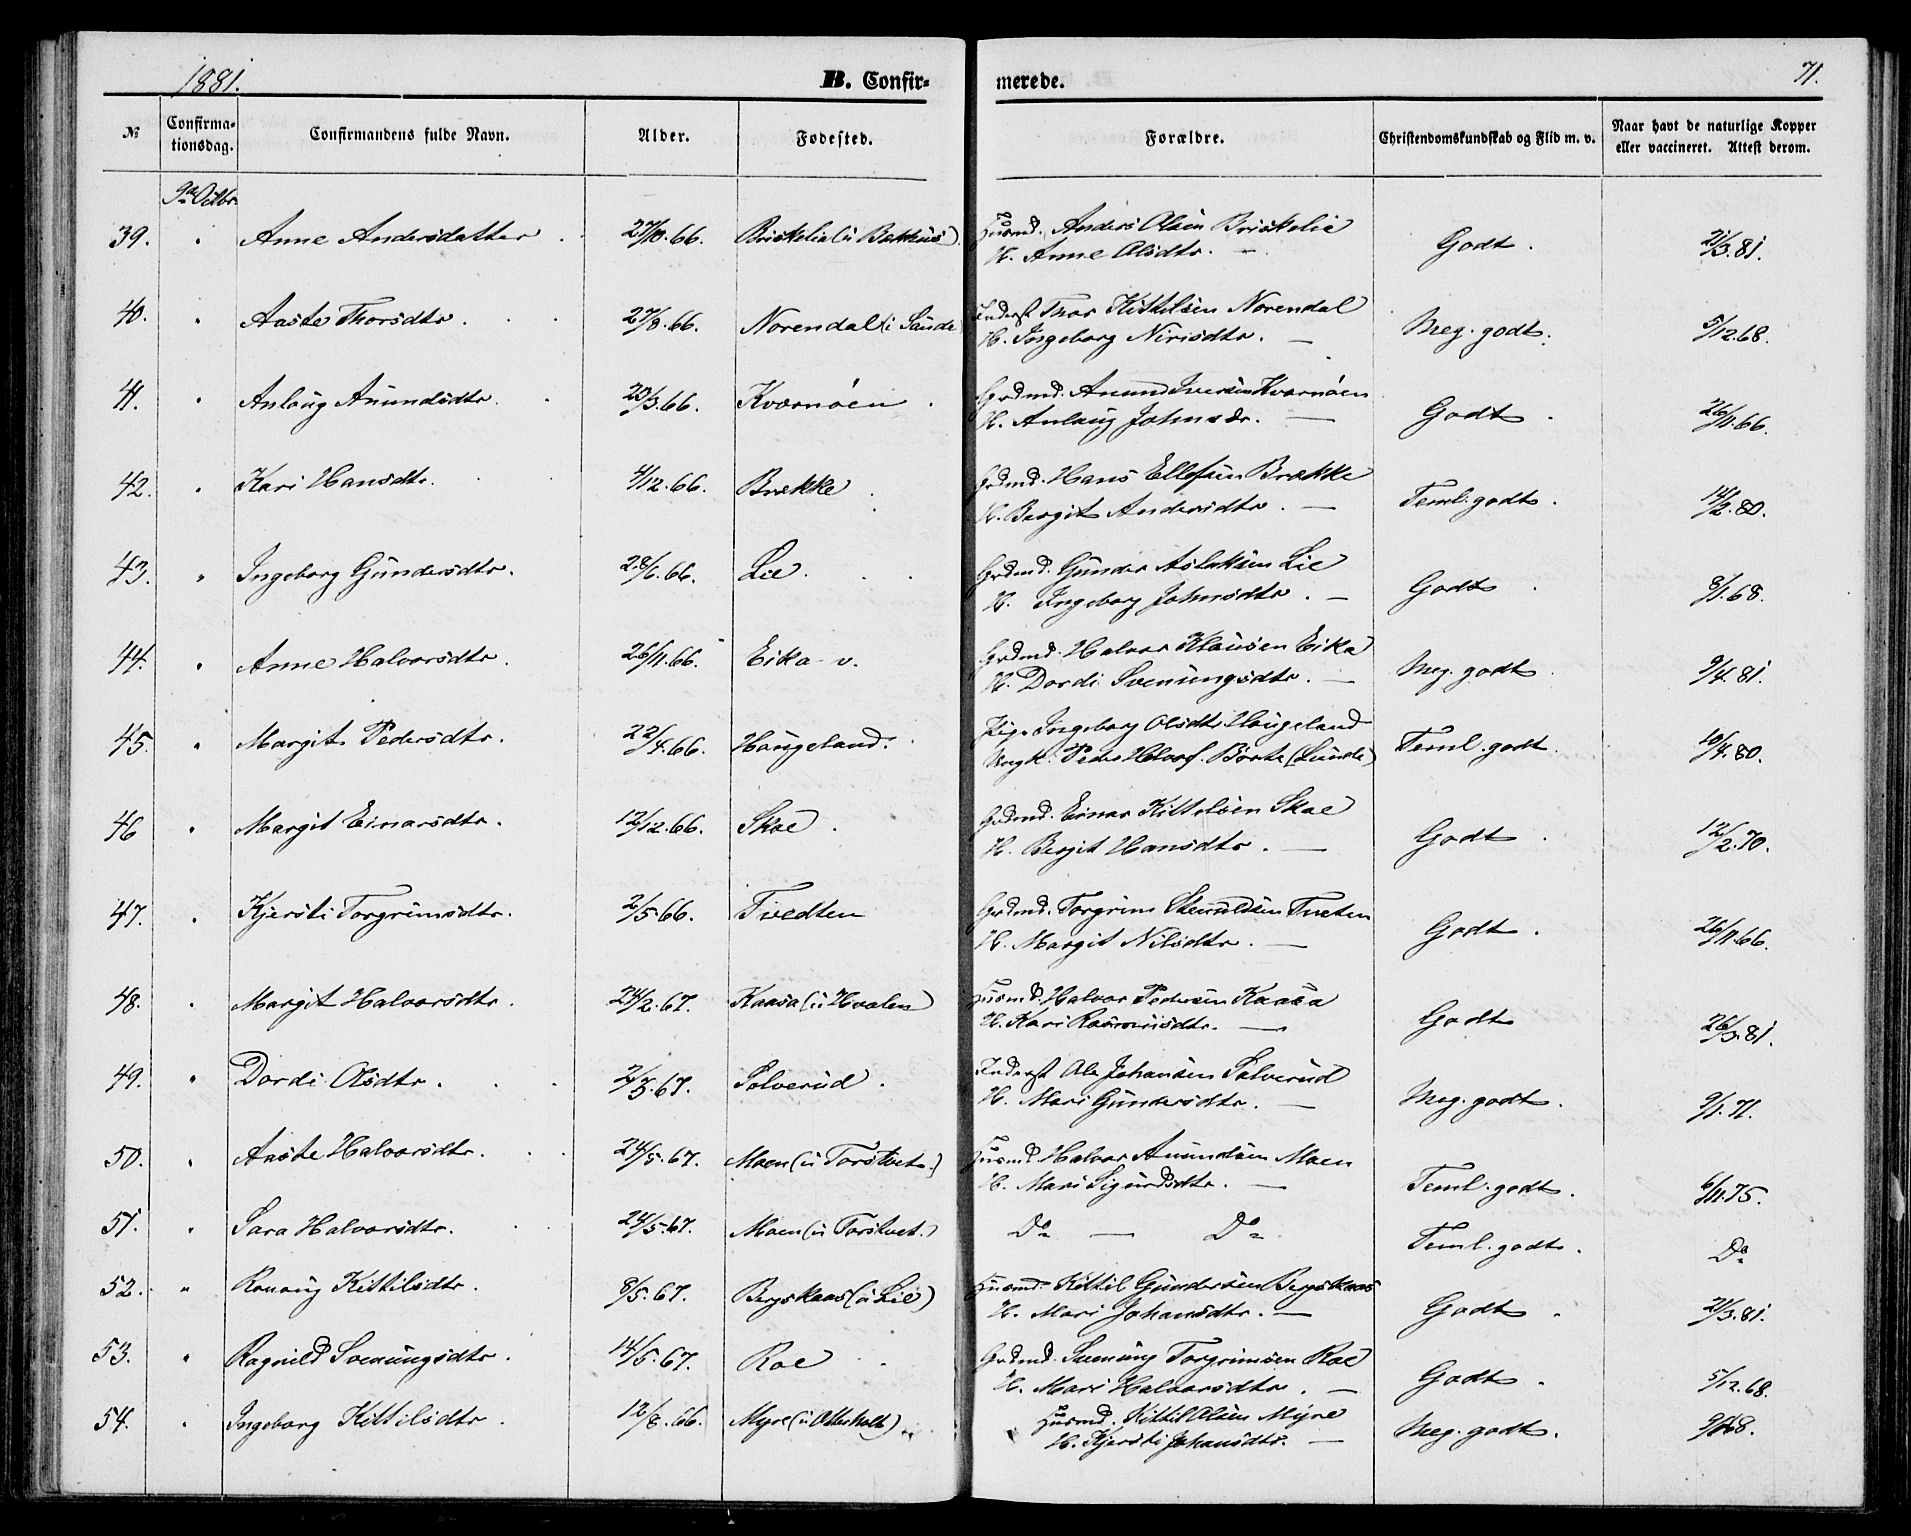 1881.
B. Confir-
merede.
71.
№ Confirma-tionsdag. Confirmandens fulde Navn. Alder. Fødested. Forældre. Christendomskundskab og Flid m. v. Naar havt de naturlige Kopper eller vaccineret. Attest derom.
9de Octbr.
39. " Anne Andersdatter. 27/10.66. Briskelia (u Bakhus). Husmd. Anders Olsen Briskelie Godt. 21/3.81.
H. Anne Olsdtr. —
40. " Aaste Thorsdtr. 27/8.66. Norendal (i Sande Inderst Thor Kittilsen Norendal Meg. godt. 5/12.68.
H. Ingeborg Nirisdtr. —
41. " Anlaug Anundsdtr. 20/3.66. Kvarnøen. Grdmd. Anund Iversen Kvarnøen Godt. 26/11.66.
H. Anlaug Johnsdr. —
42. " Kari Hansdtr. 4/12.66. Brekke. Grdmd. Hans Ellefsen Brække Teml. godt. 14/2.80.
H. Bergit Andersdtr. —
43. " Ingeborg Gundersdtr. 28/6.66. Lie. Grdmd. Gunder Aslaksen Lie Godt. 8/1.68.
H. Ingeborg Johnsdtr. —
44. " Anne Halvorsdtr. 26/11.66. Eika v. Grdmd. Halvor Klausen Eika Meg. godt. 9/4.81.
H. Dordi Svenungsdtr. —
45. " Margit Pedersdtr. 22/4.66. Haugeland. Pige Ingeborg Olsdtr. Haugeland Teml. godt. 10/4.80.
Ungk. Peder Halvors. Børte (Lunde)
46 " Margit Einarsdtr. 12/12.66. Skoe. Grdmd. Einar Kittelsen Skoe Godt. 12/2.70.
H. Bergit Hansdtr. —
47. " Kjersti Torgrimsdtr. 2/5.66. Tvedten Grdmd. Torgrim Stenuldsen Tveten Godt. 26/11.66.
H. Margit Nilsdtr. —
48. " Margit Halvorsdtr. 24/2.67. Kaasa (u Hvalen) Husmd. Halvor Pedersen Kaasa Godt 26/3.81.
H. Kari Rasmusdtr. —
49. " Dordi Olsdtr. 2/3.67. Solverud. Inderst Ole Johansen Solverud Meg. godt. 9/1.71.
H. Mari Gundersdtr. —
50. " Aaste Halvorsdtr. 24/5.67. Moen (u Torstvet.) Husmd. Halvor Anundsen Moen Teml. godt. 6/11.75.
H. Mari Sigurdsdtr. —
51. " Sara Halvorsdtr. 24/5.67. Moen (u Torstvet.) Do — Do Teml. godt. Do
52. " Ronaug Kittilsdtr. 8/5.67. Bergskaas (u Lie) Husmd. Kittil Gundersen Bergskaas Godt. 21/3.81.
H. Mari Johansdtr. —
53. " Ragnild Svenungsdtr. 14/5.67. Roe Grdmd. Svenung Torgrimsen Roe Godt. 5/12.68.
H. Mari Halvorsdtr. —
54. Ingeborg Kittilsdtr. 12/8.66. Myre (u Otterholt). Husmd. Kittil Olsen Myre Meg. godt.
H. Kjersti Johansdtr. —